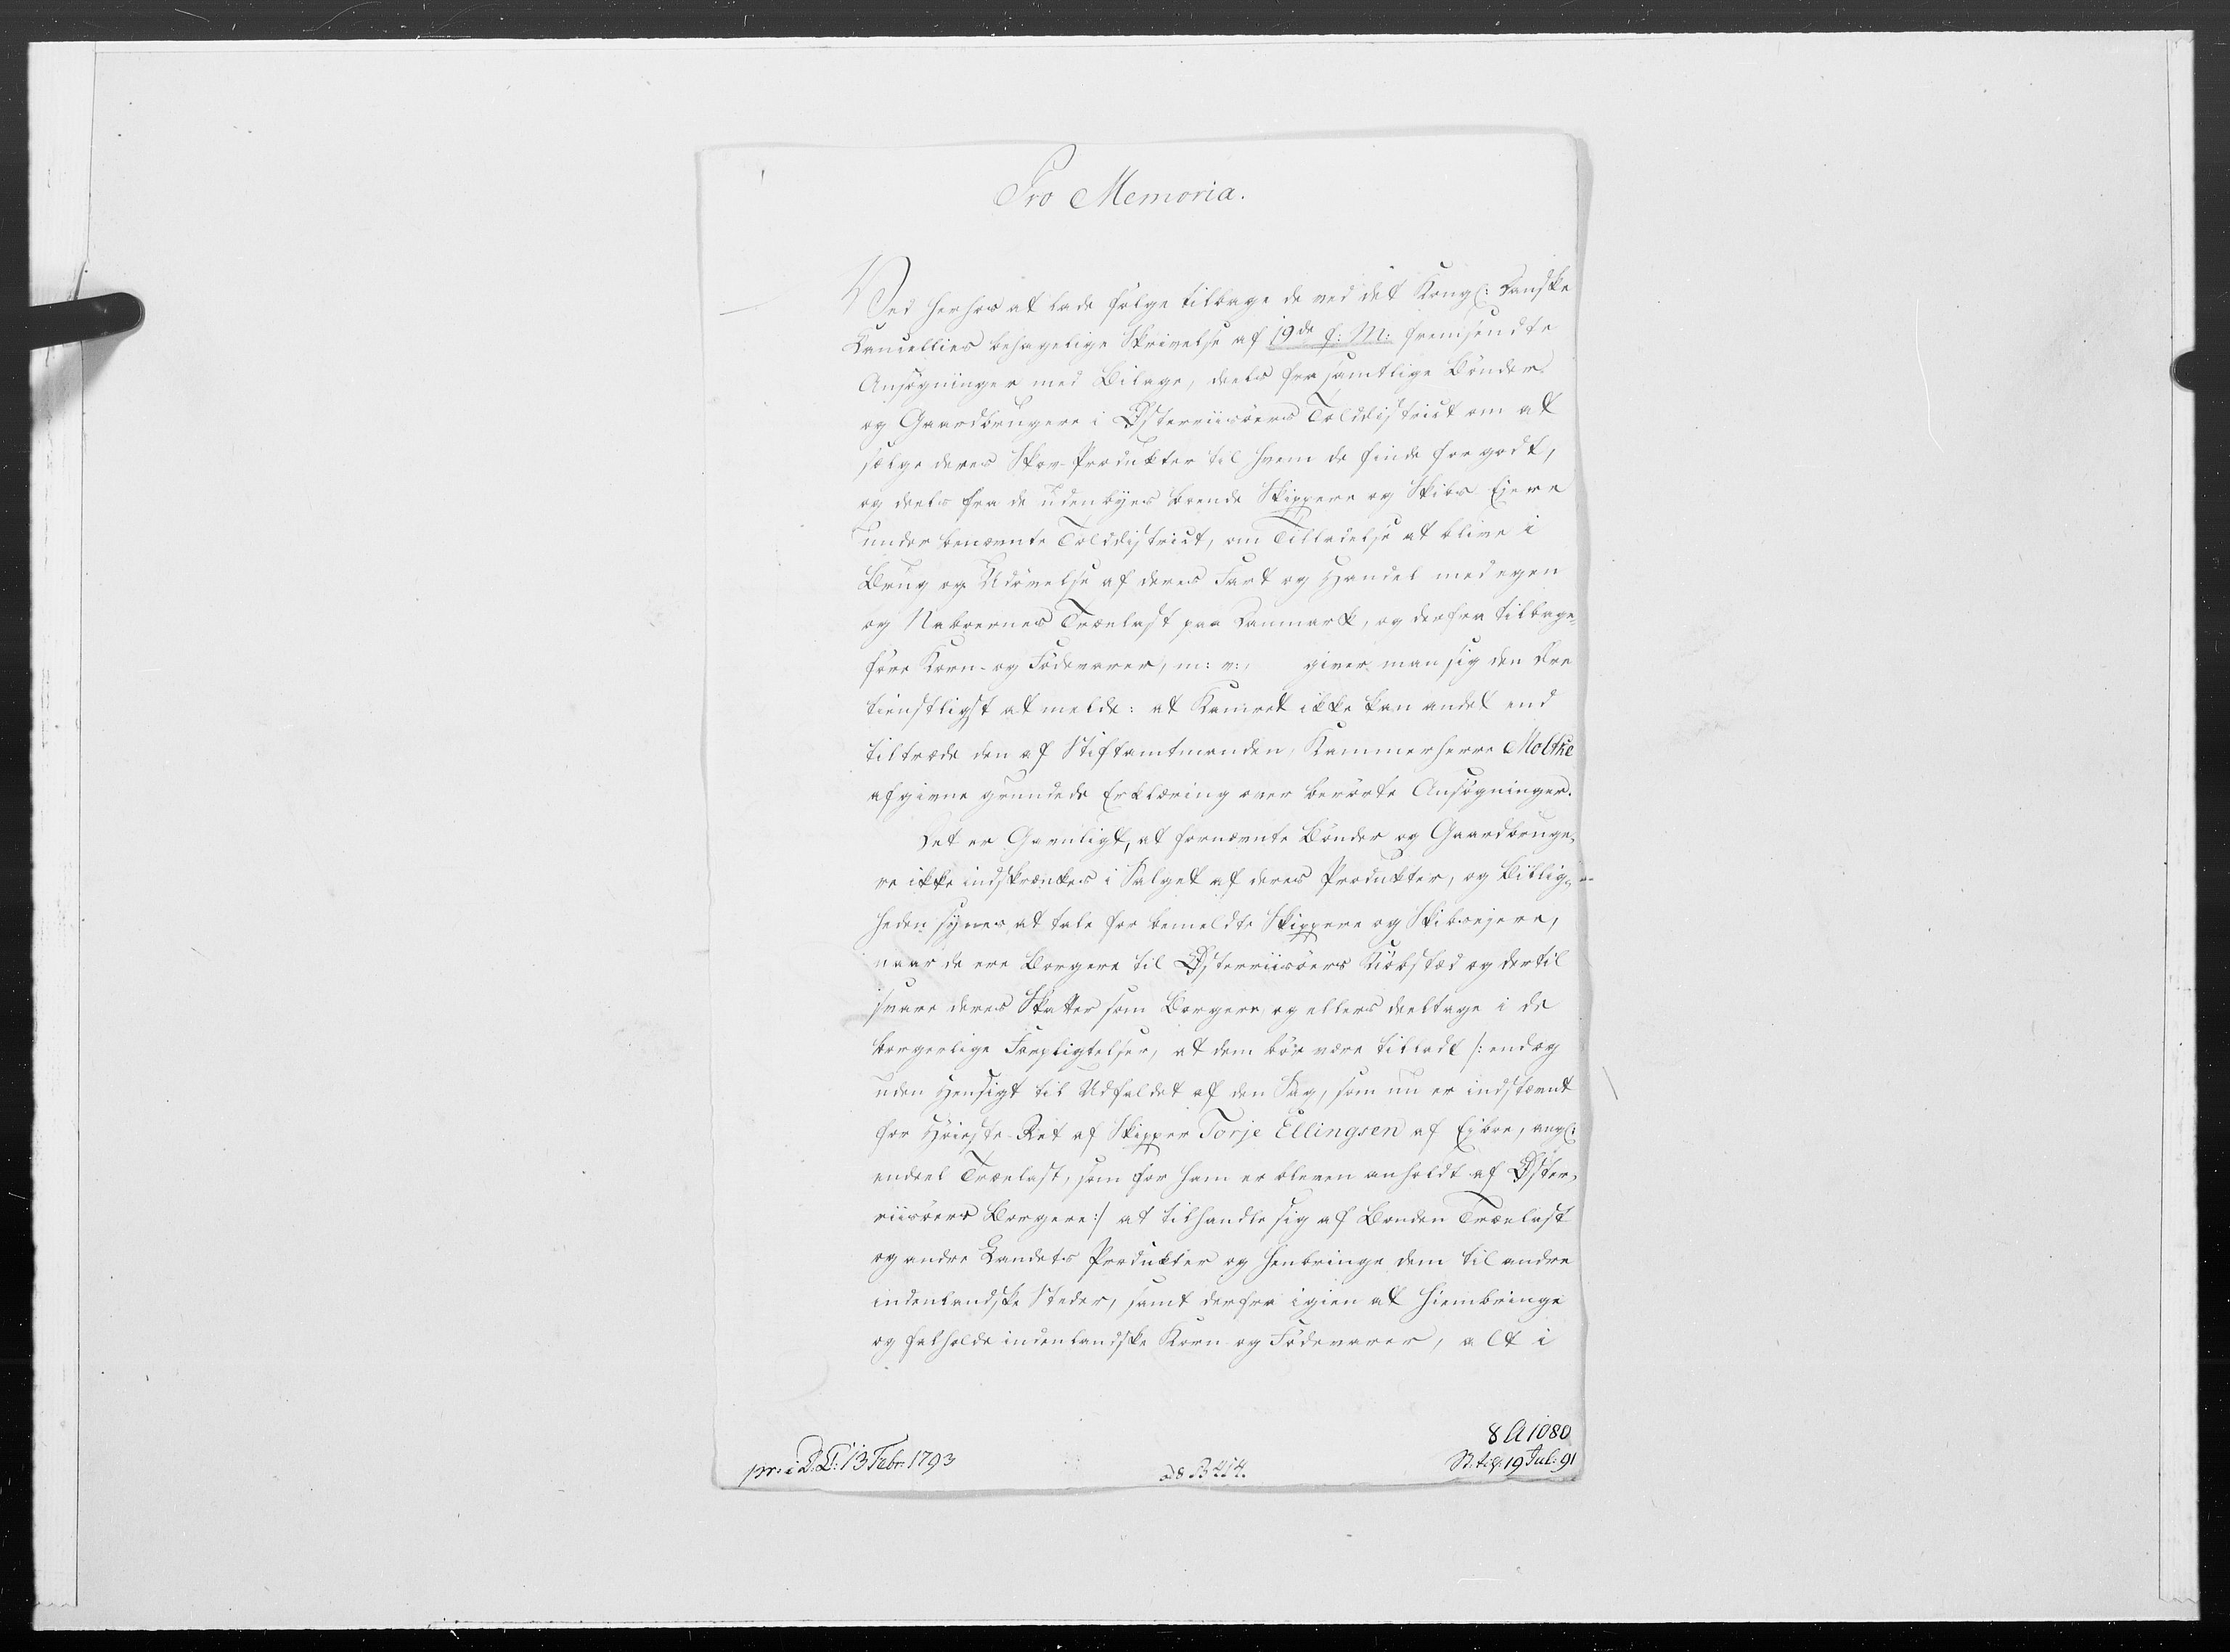 Pro Memoria.
Ved herhos at lade følge tilbage de ved det Kongl: Danske
Cancellies behagelige Skrivelse af 19de f: M: fremsendte
Ansøgninger med Bilage, deels fra samtlige Bønder
og Gaardbrugere i Østerriisöers Tolddistrict om at
sælge deres Skov-Produkter til hvem de finde for godt,
og deels fra de udenbyes boende Skippere og Skibs Eiere
under benævnte Tolddistrict, om Tilladelse at blive i
Brug og Udøvelse af deres Fart og Handel med egen
og Naboernes Trælast paa Danmark, og derfra tilbage-
føre Korn- og Fødevarer, m: v:, giver man sig den Ære
tienstligst at melde: at Kamret ikke kan andet end
tiltræde den af Stiftamtmanden, Kammerherre Moltke
afgivne grundede Erklæring over berørte Ansøgninger.
Det er Gavnligt, at fornævnte Bønder og Gaardbruge-
re ikke indskrænkes i Salget af deres Produkter, og Billig-
heden synes at tale for bemeldte Skippere og Skibseiere,
naar de ere Borgere til Østerriisöers Kiöbstæd og dertil
svare deres Skatter som Borgere, og ellers deeltage i de
borgerlige Forpligtelser, at dem bør være tilladt /: endog
uden Hensigt til Udfaldet af den Sag, som nu er indstævnt
for Høieste-Ret af Skipper Torje Ellingsen af Ejboe, angl:
endeel Trælast, som for ham er bleven anholdt af Øster-
riisöers Borgere :/ at tilhandle sig af Bonden Trælast
og andre Landets Produkter og henbringe dem til andre
indenlandske Steder, samt derfra igien at hiembringe
og falholde indenlandske Korn- og Fødevarer, alt i
pr: i D: C: 13 Febr: 1793
ad 8 B 414.
8 A 1080
19 Jul: 91